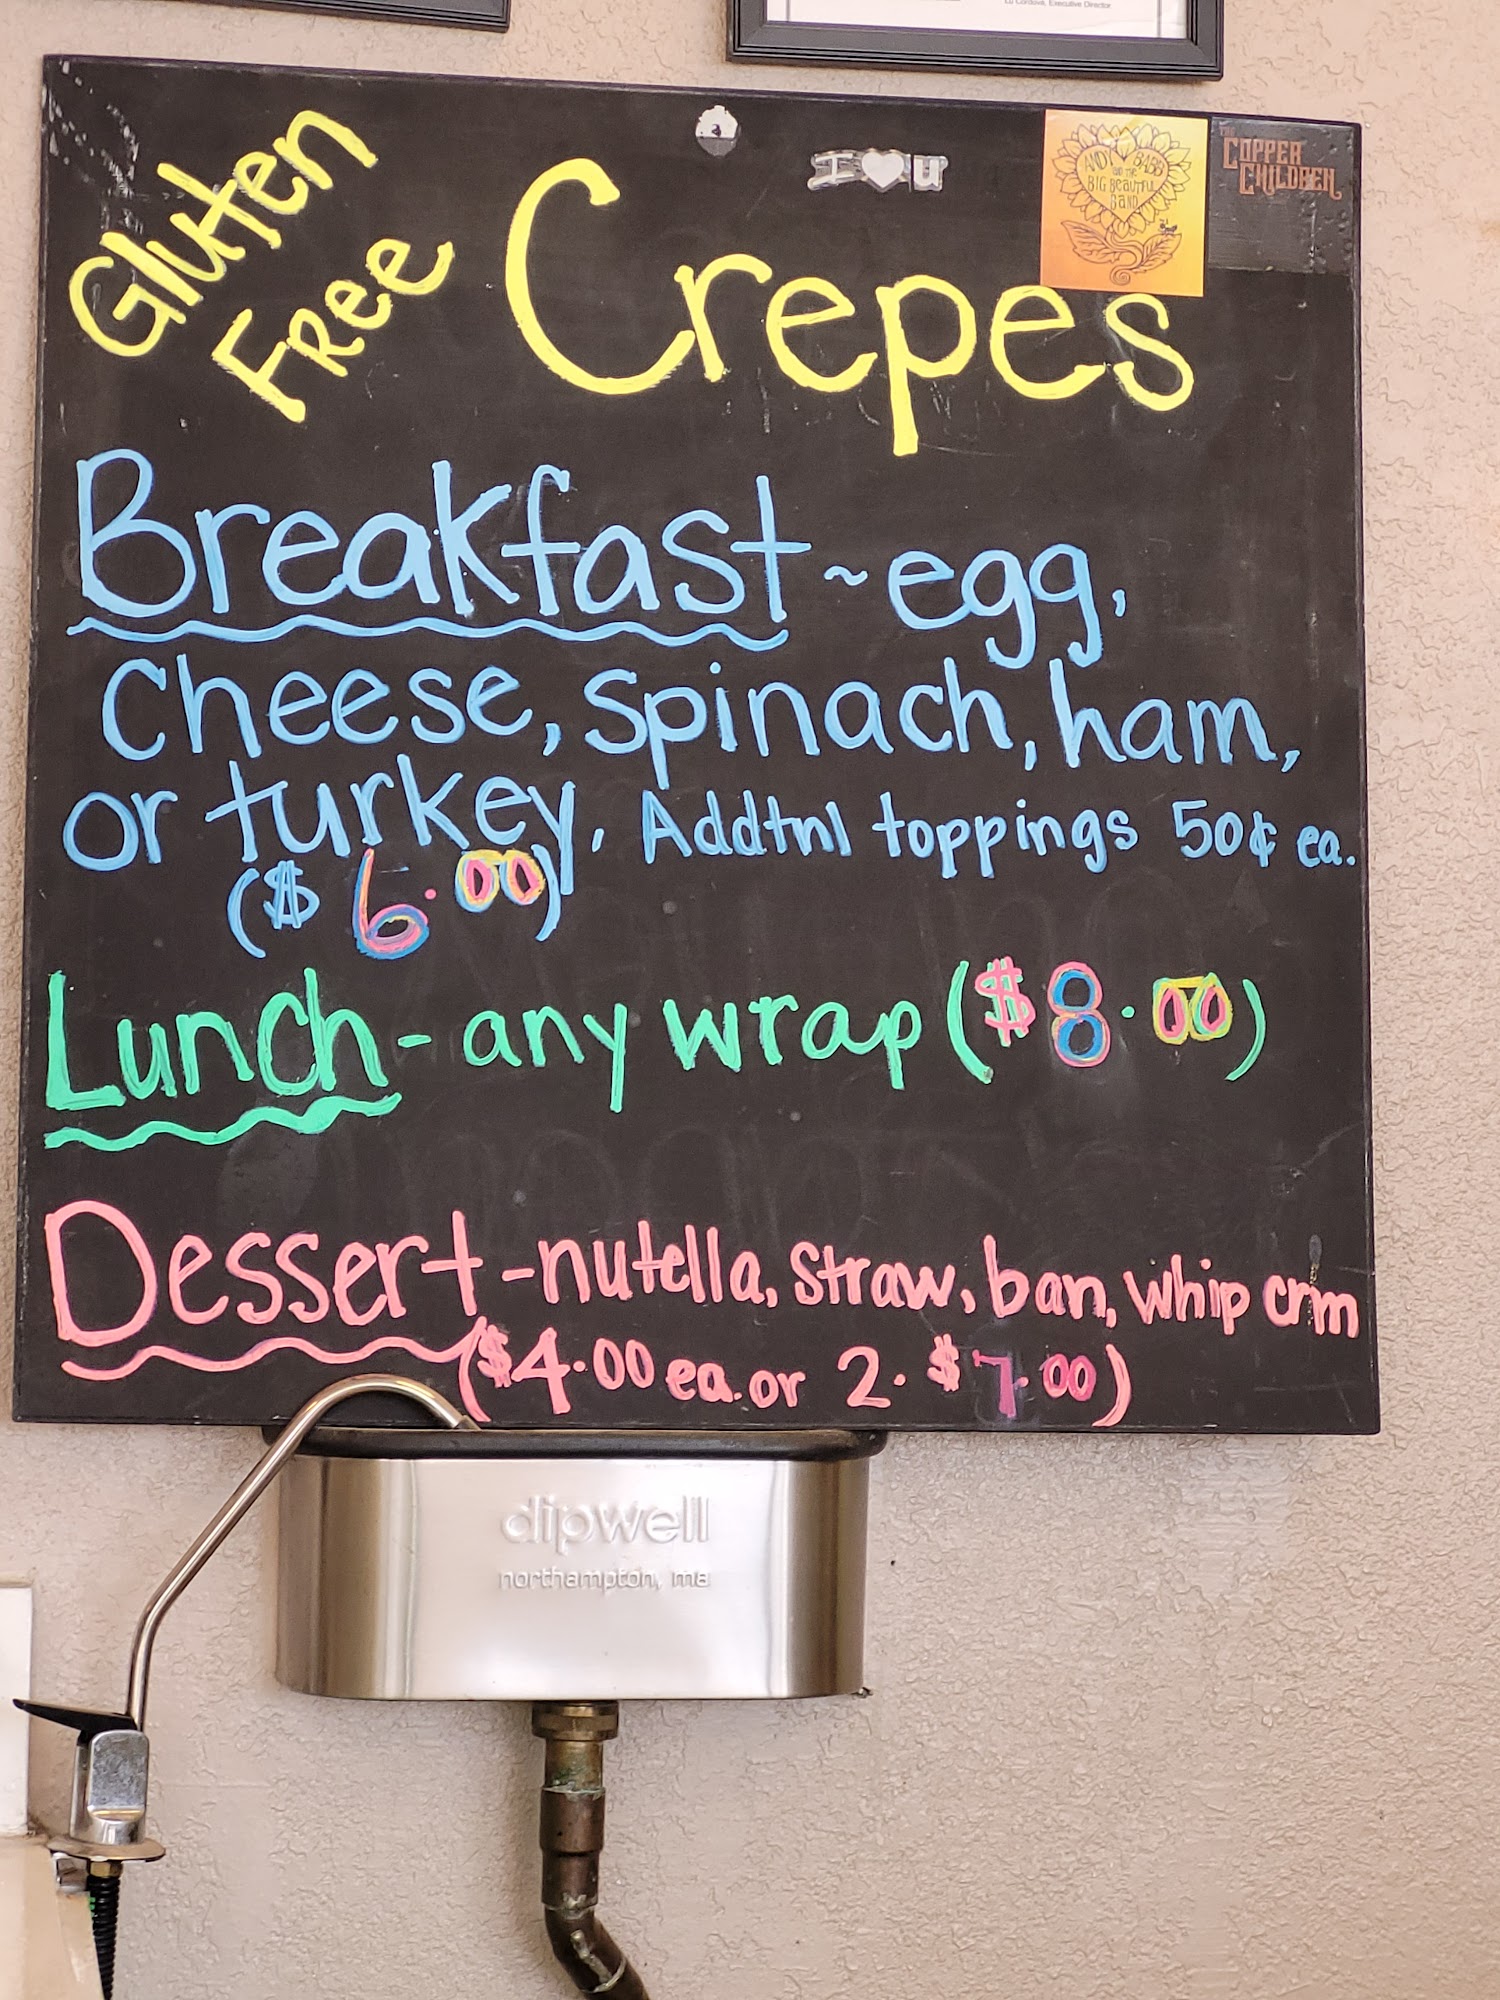 Lu Cordova, Executive Director
Gluten
Free
Crepes
I u
ANDY BABB
AND THE
BIG BEAUTIFUL
BAND
THE
COPPER
CHILDREN
Breakfast ~ egg,
Cheese, spinach, ham,
or turkey. Addtnl toppings 50¢ ea.
($ 6.00)
Lunch - any wrap ($8.00)
Dessert - nutella, straw, ban, whip crm
($4.00 ea. or 2. $7.00)
dipwell
northampton, ma